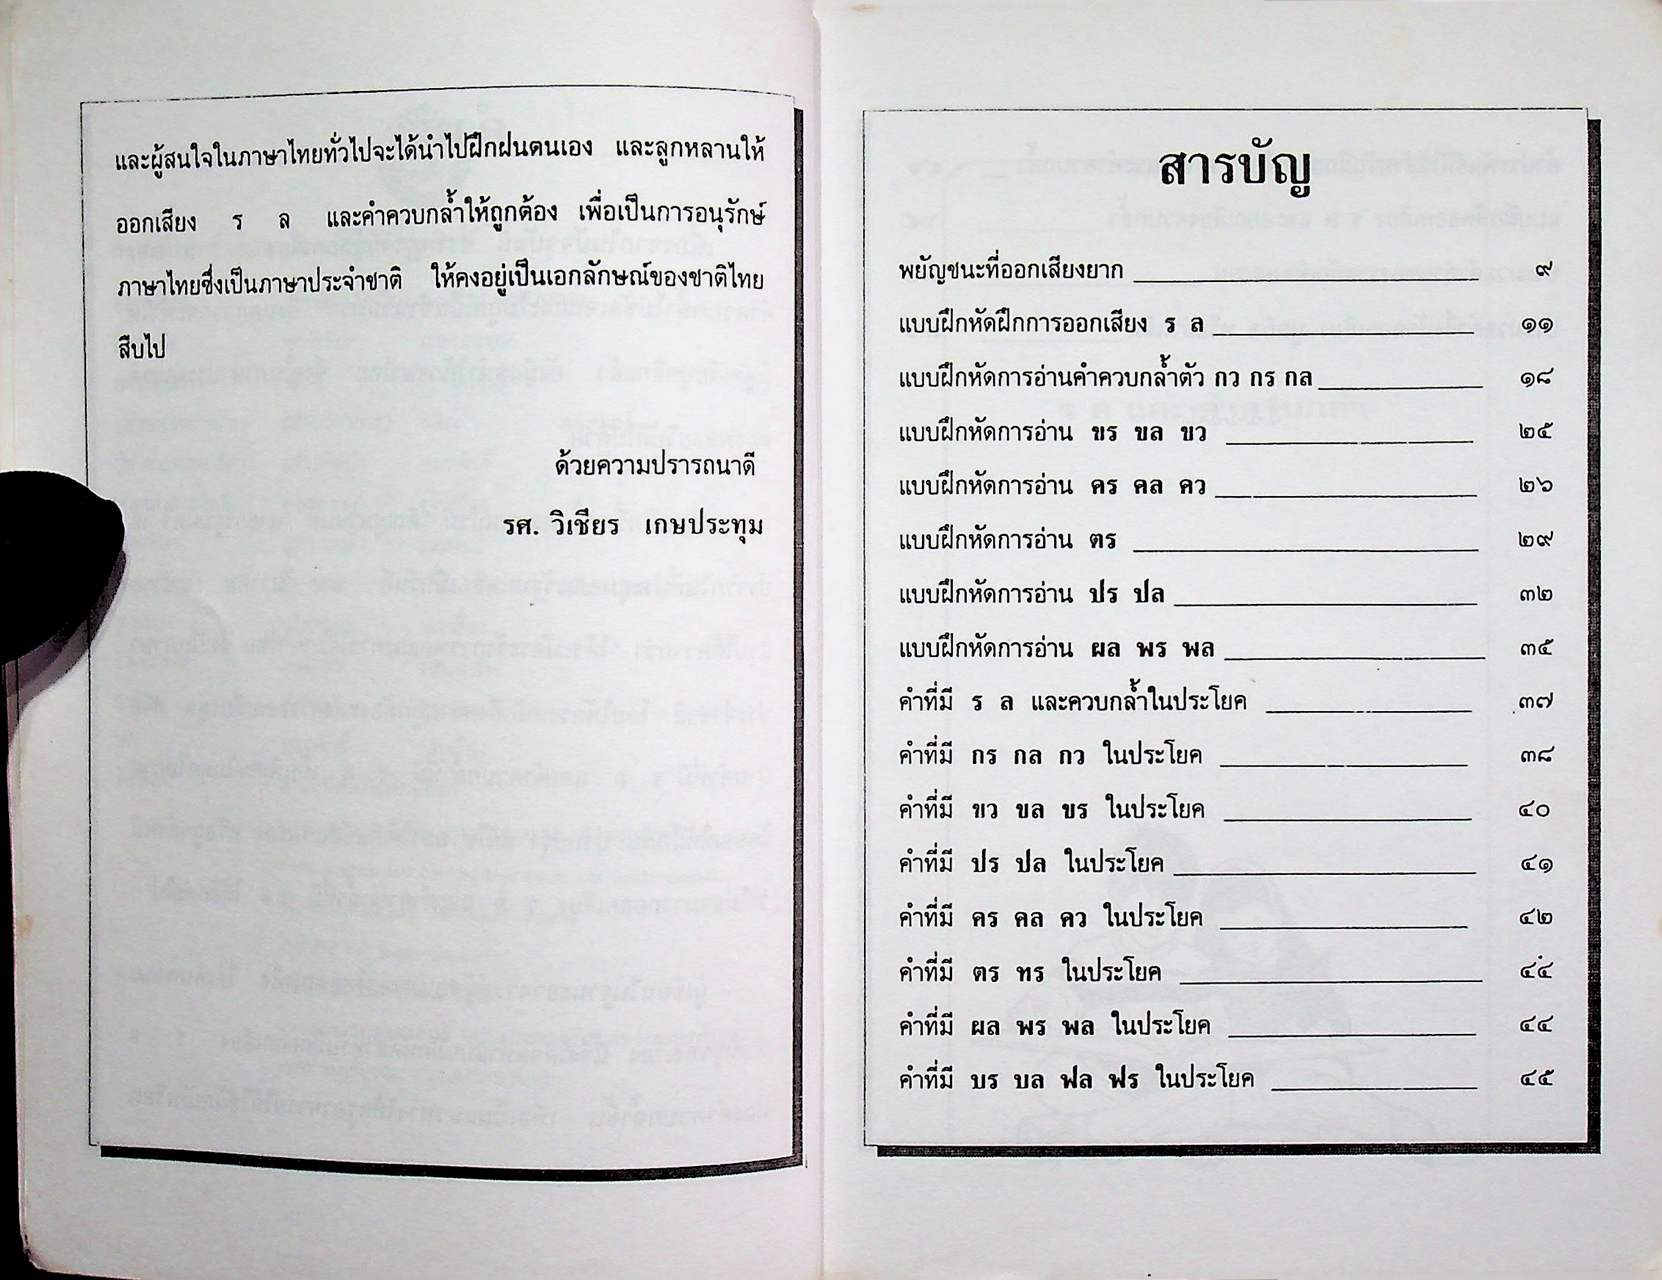 และผู้สนใจในภาษาไทยทั่วไปจะได้นำไปฝึกฝนตนเอง และลูกหลานให้
ออกเสียง ร ล และคำควบกล้ำให้ถูกต้อง เพื่อเป็นการอนุรักษ์
ภาษาไทยซึ่งเป็นภาษาประจำชาติ ให้คงอยู่เป็นเอกลักษณ์ของชาติไทย
สืบไป
ด้วยความปรารถนาดี
รศ. วิเชียร เกษประทุม
สารบัญ
พยัญชนะที่ออกเสียงยาก ๙
แบบฝึกหัดฝึกการออกเสียง ร ล ๑๑
แบบฝึกหัดการอ่านคำควบกล้ำตัว กว กร กล ๑๘
แบบฝึกหัดการอ่าน ขร ขล ขว ๒๕
แบบฝึกหัดการอ่าน คร คล คว ๒๖
แบบฝึกหัดการอ่าน ตร ๒๙
แบบฝึกหัดการอ่าน ปร ปล ๓๒
แบบฝึกหัดการอ่าน ผล พร พล ๓๕
คำที่มี ร ล และควบกล้ำในประโยค ๓๗
คำที่มี กร กล กว ในประโยค ๓๘
คำที่มี ขว ขล ขร ในประโยค ๔๐
คำที่มี ปร ปล ในประโยค ๔๑
คำที่มี คร คล คว ในประโยค ๔๒
คำที่มี ตร ทร ในประโยค ๔๔
คำที่มี ผล พร พล ในประโยค ๔๔
คำที่มี บร บล ฟล ฟร ในประโยค ๔๕